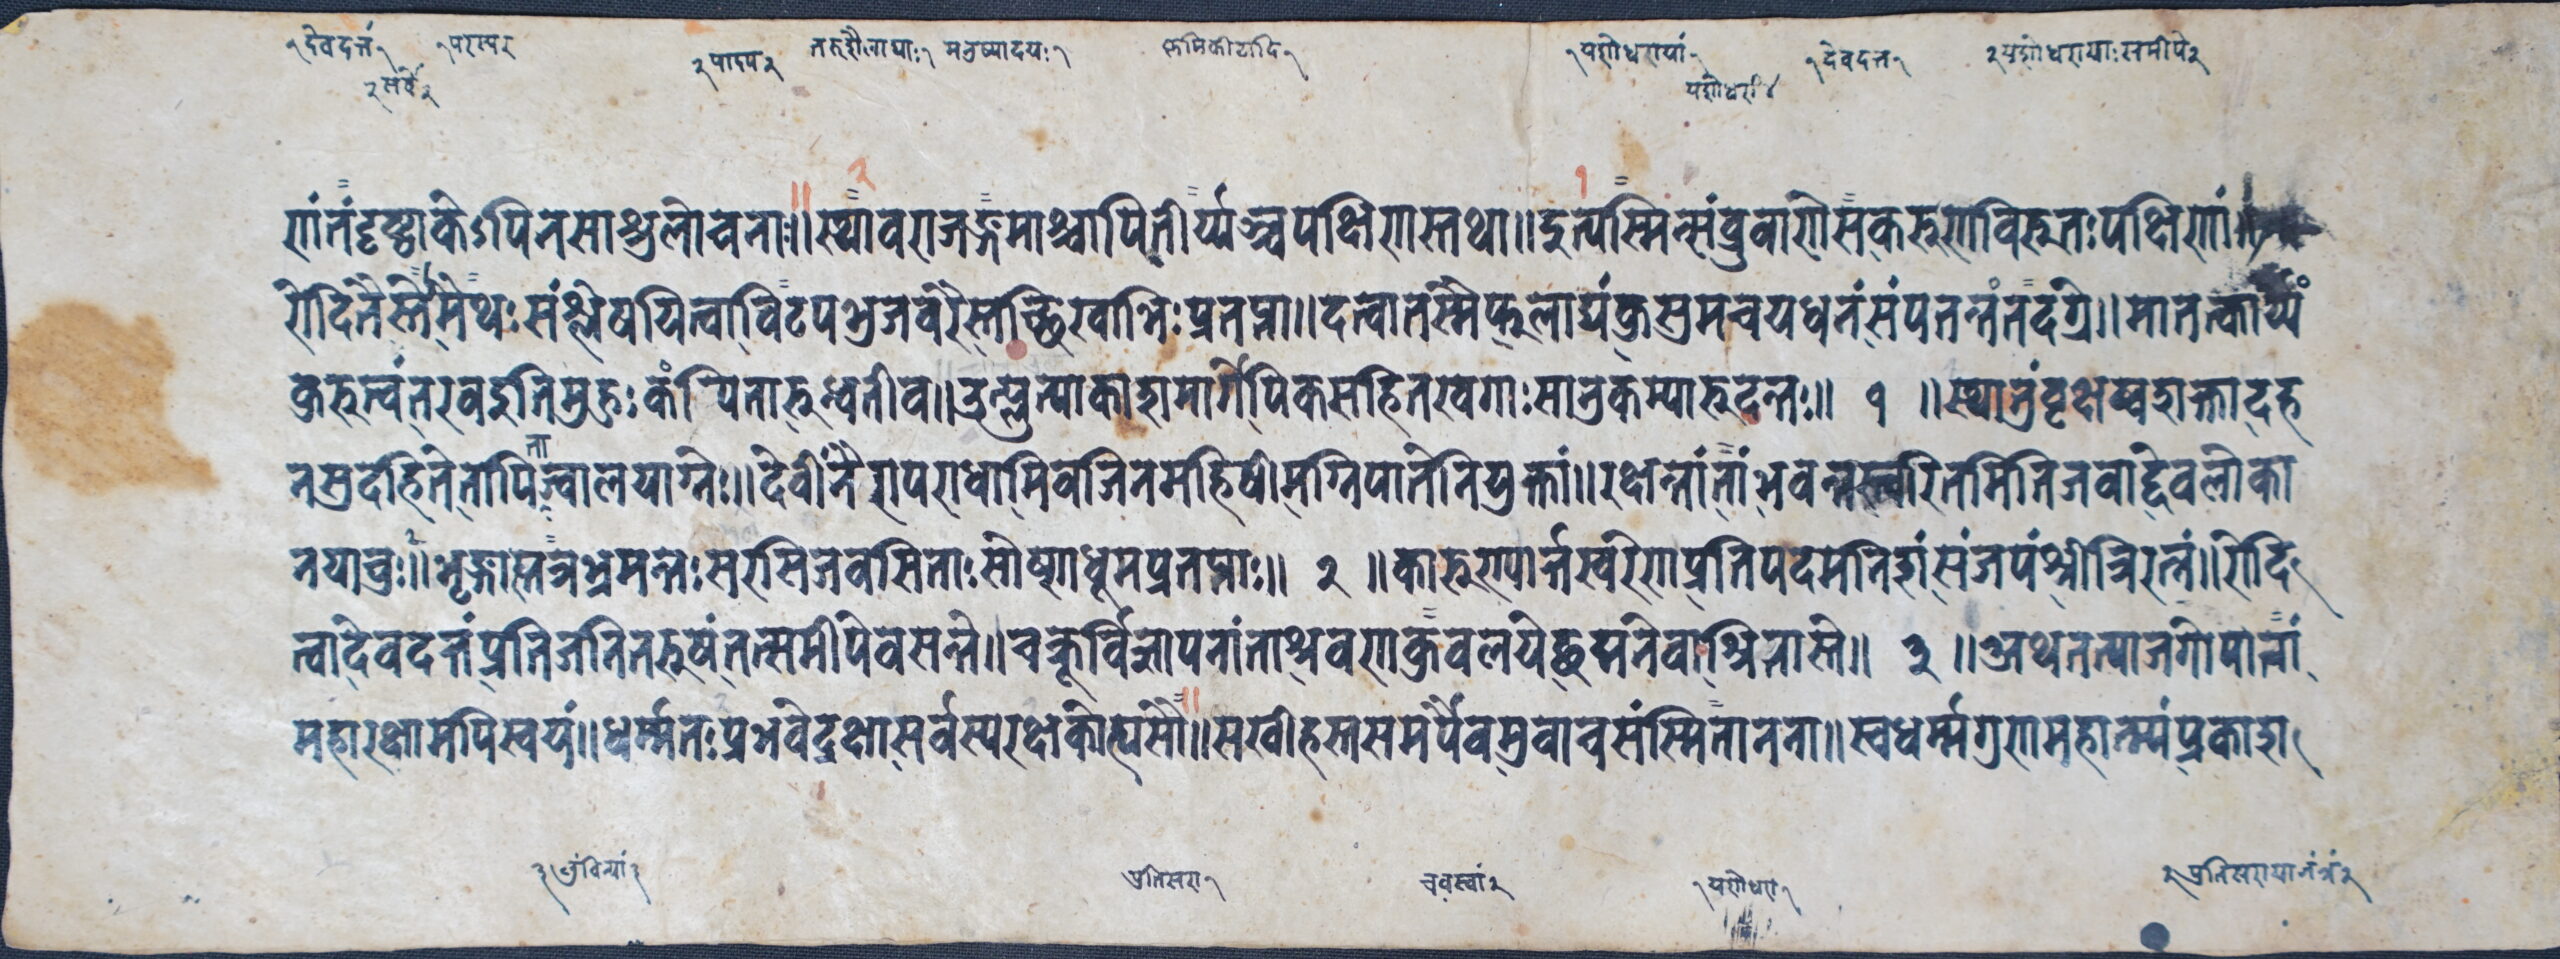 १देवदत्तं१ १परस्पर २पादप२ तरुशैलाद्याः१ मनुष्यादयः१ कृमिकीटादि१ १यशोधरायां१ १देवदत्त१ २यशोधरायाः समीपे२
२सर्वे२ यशोधरां४
णांतंदृष्ट्वाकेऽपिनसाश्रुलोचनाः॥स्थावराजङ्गमाश्चापितीर्य्यञ्चपक्षिणास्तथा॥इत्यस्मिन्संब्रुवाणेसकरुणविरुतःपक्षिणां
रोदितैस्तैर्मिथःसंश्लेषयित्वाविटपभुजवरैस्तच्छिखाभिःप्रतप्ता॥दत्वातस्मैफुलाद्यंकुसुमचयधनंसंपतन्तंतदग्रे॥मातत्कार्य्यं
कुरुत्वंतरवइतिमुहुःकंपितारुन्धतीव॥उत्प्लुत्याकाशमार्गेपिकसहितखगाःसानुकम्पारुदन्तः॥ १ ॥स्थातुंवृक्षष्वशक्तादह
नमुदहितेतापिताज्वालयाग्नेः॥देवींनैवापराधामिवजिनमहिषीमग्निपातेनियुक्तां॥रक्षन्तांतांभवन्तस्त्वरितमितिजवाद्देवलोका
नयाचुः॥भृङ्गास्तत्रभ्रमन्तःसरसिजवसिताःसोष्णधूमप्रतप्ताः॥ २ ॥कारुण्यार्तस्वरेणप्रतिपदमनिशंसंजपंश्रीत्रिरत्नं॥रोदि
त्वादेवदत्तंप्रतिजनितरुषंतत्समीपेवसन्ते॥चक्रूर्विज्ञापनांताश्रवणकुवलयेछद्मनेवाश्रितास्ते॥ ३ ॥अथतत्याजगोपातां
महारक्षामपिस्वयं॥धर्म्मतःप्रभवेद्रक्षासर्वस्यरक्षकोत्यसौ॥सखीहस्तसमर्प्यैवमुवाचसंस्मितानना॥स्वधर्म्मगुणमहात्म्यंप्रकाश
प्रतिसरा१ १यशोधरा१ २प्रतिसरायातंत्रं२